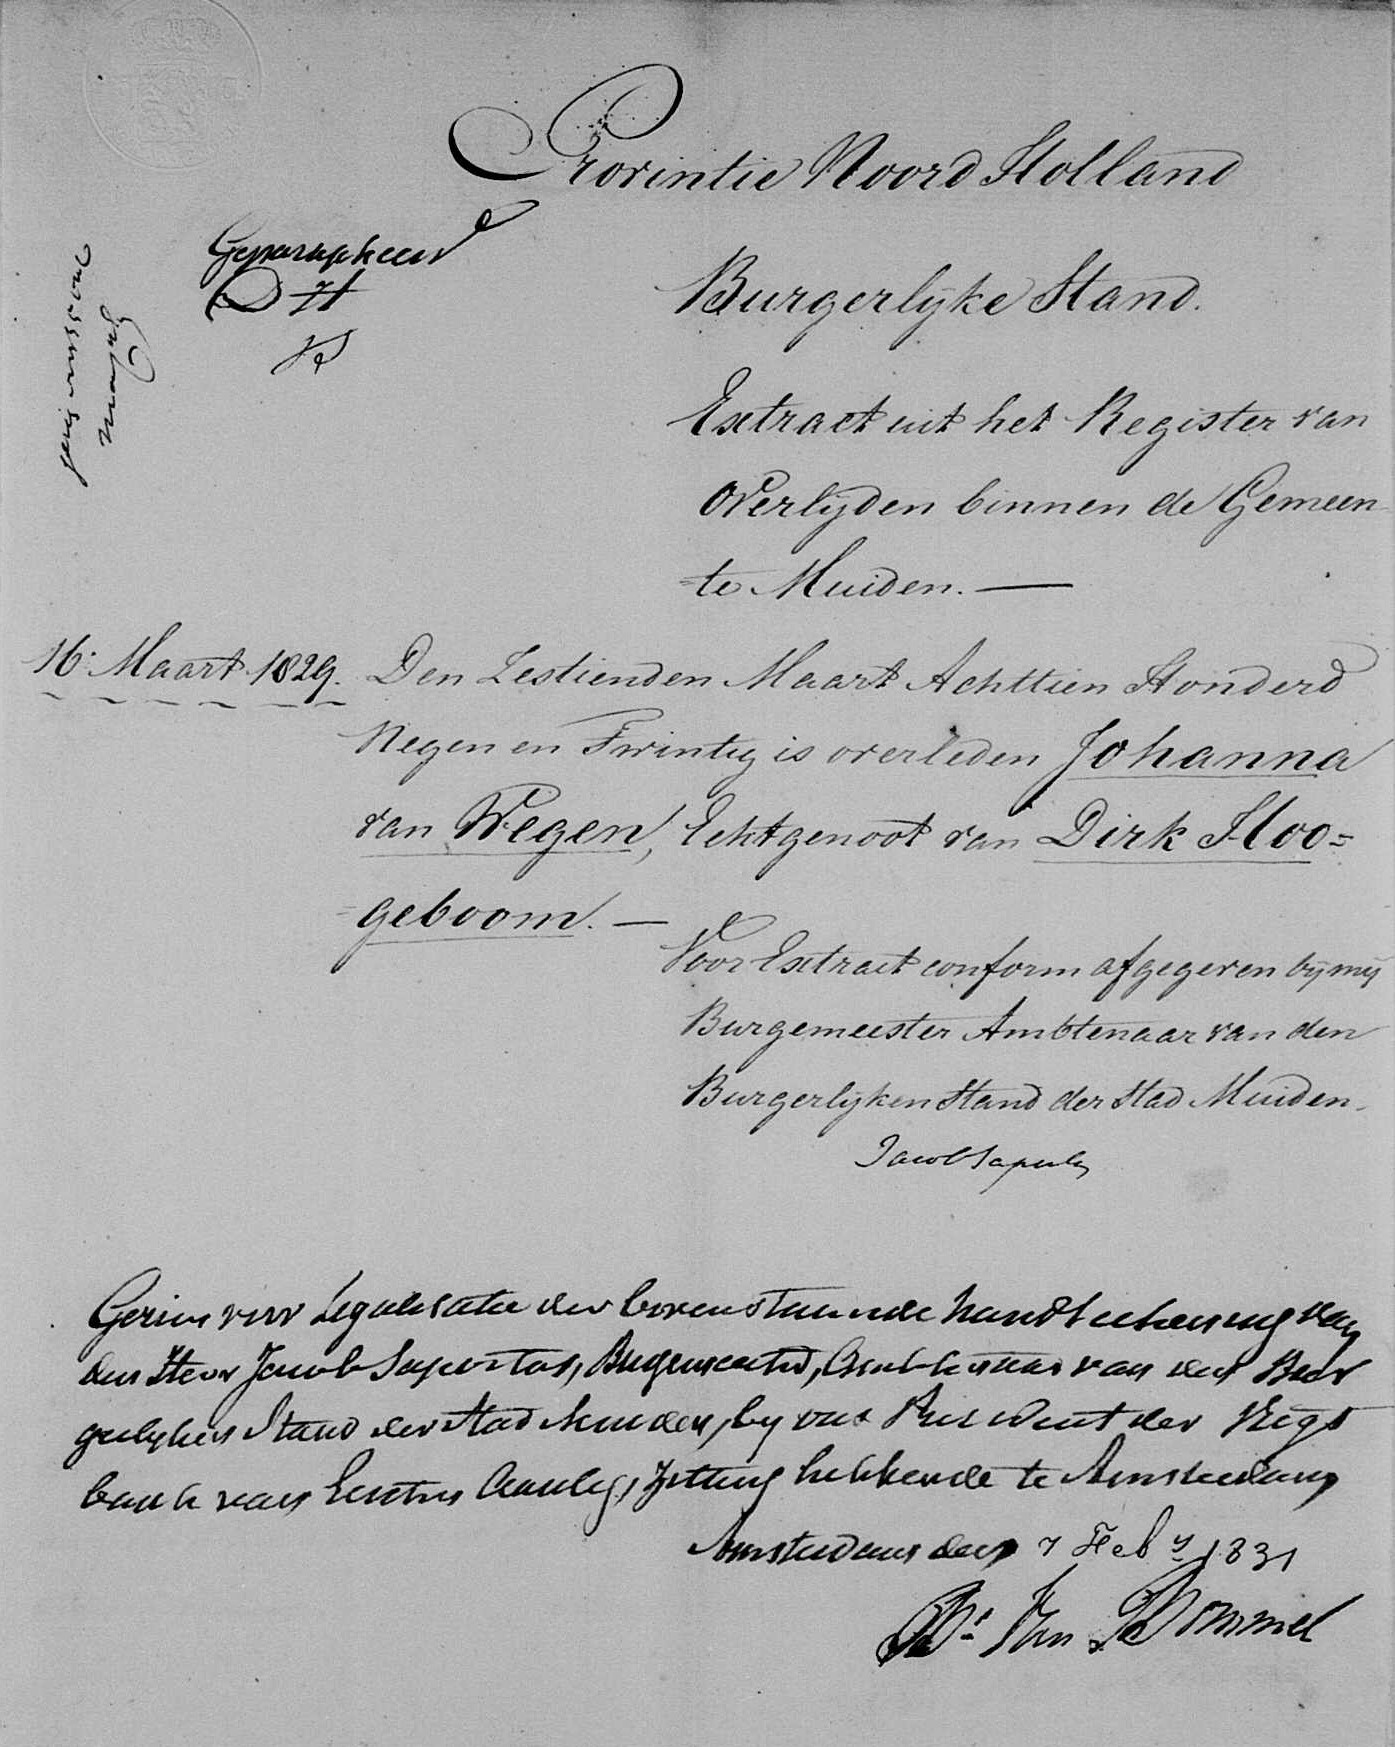 Provintie Noord Holland
Geparapheerd
D H
Burgerlyke Stand.
Extract uit het Register van
Overlyden binnen de Gemeen
te Muiden. —
16. Maart 1829. Den Zestienden Maart Achttien Honderd
Negen en Twintig is overleden Johanna
van Wegen, Echtgenoot van Dirk Hoo=
geboom. —
Voor Extract conform afgegeven by my
Burgemeester Ambtenaar van den
Burgerlyken Stand der Stad Muiden.
Jacob Saportas
Gezien voor Legalisatie der bovenstaande handteekening van
den Heer Jacob Saportas, Burgemeester, Ambtenaar van den Bur
gerlyken Stand der Stad Muiden, by ons President der Regt
bank van Eersten Aanleg, zitting hebbende te Amsterdam
Amsterdam den 7 Feby 1831
Van Bommel